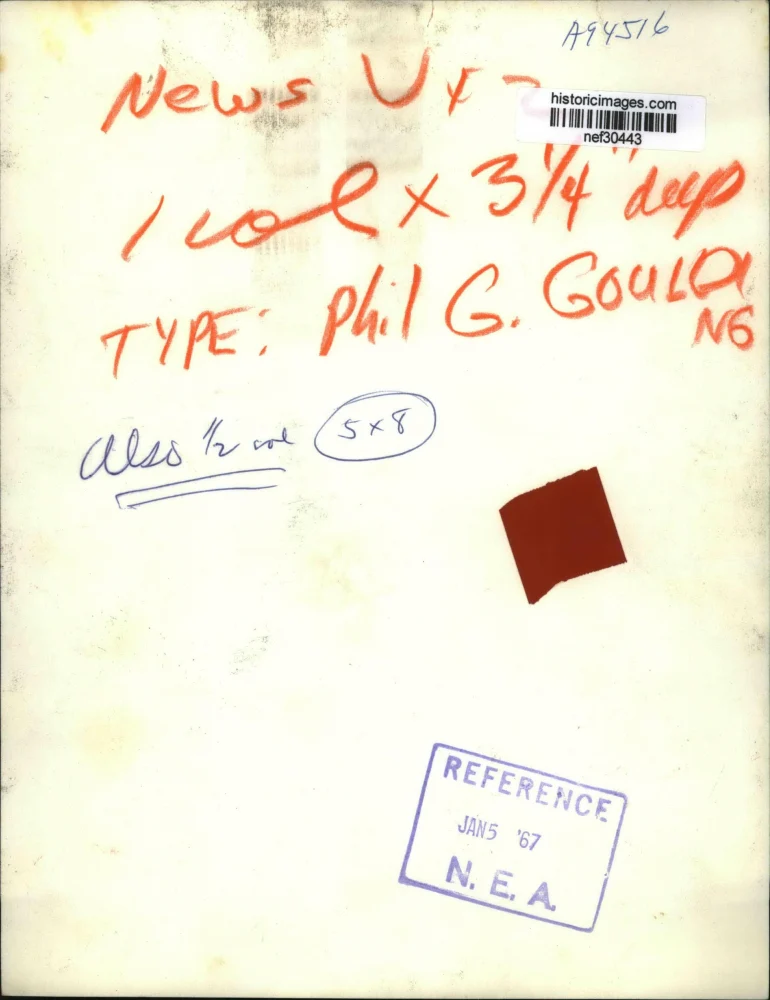 A94516
News
historicimages.com
nef30443
1 col x 3 1/4" deep
TYPE: Phil G. GOULDING
Also 1/2 col 5x8
REFERENCE
JAN 5 '67
N. E. A.